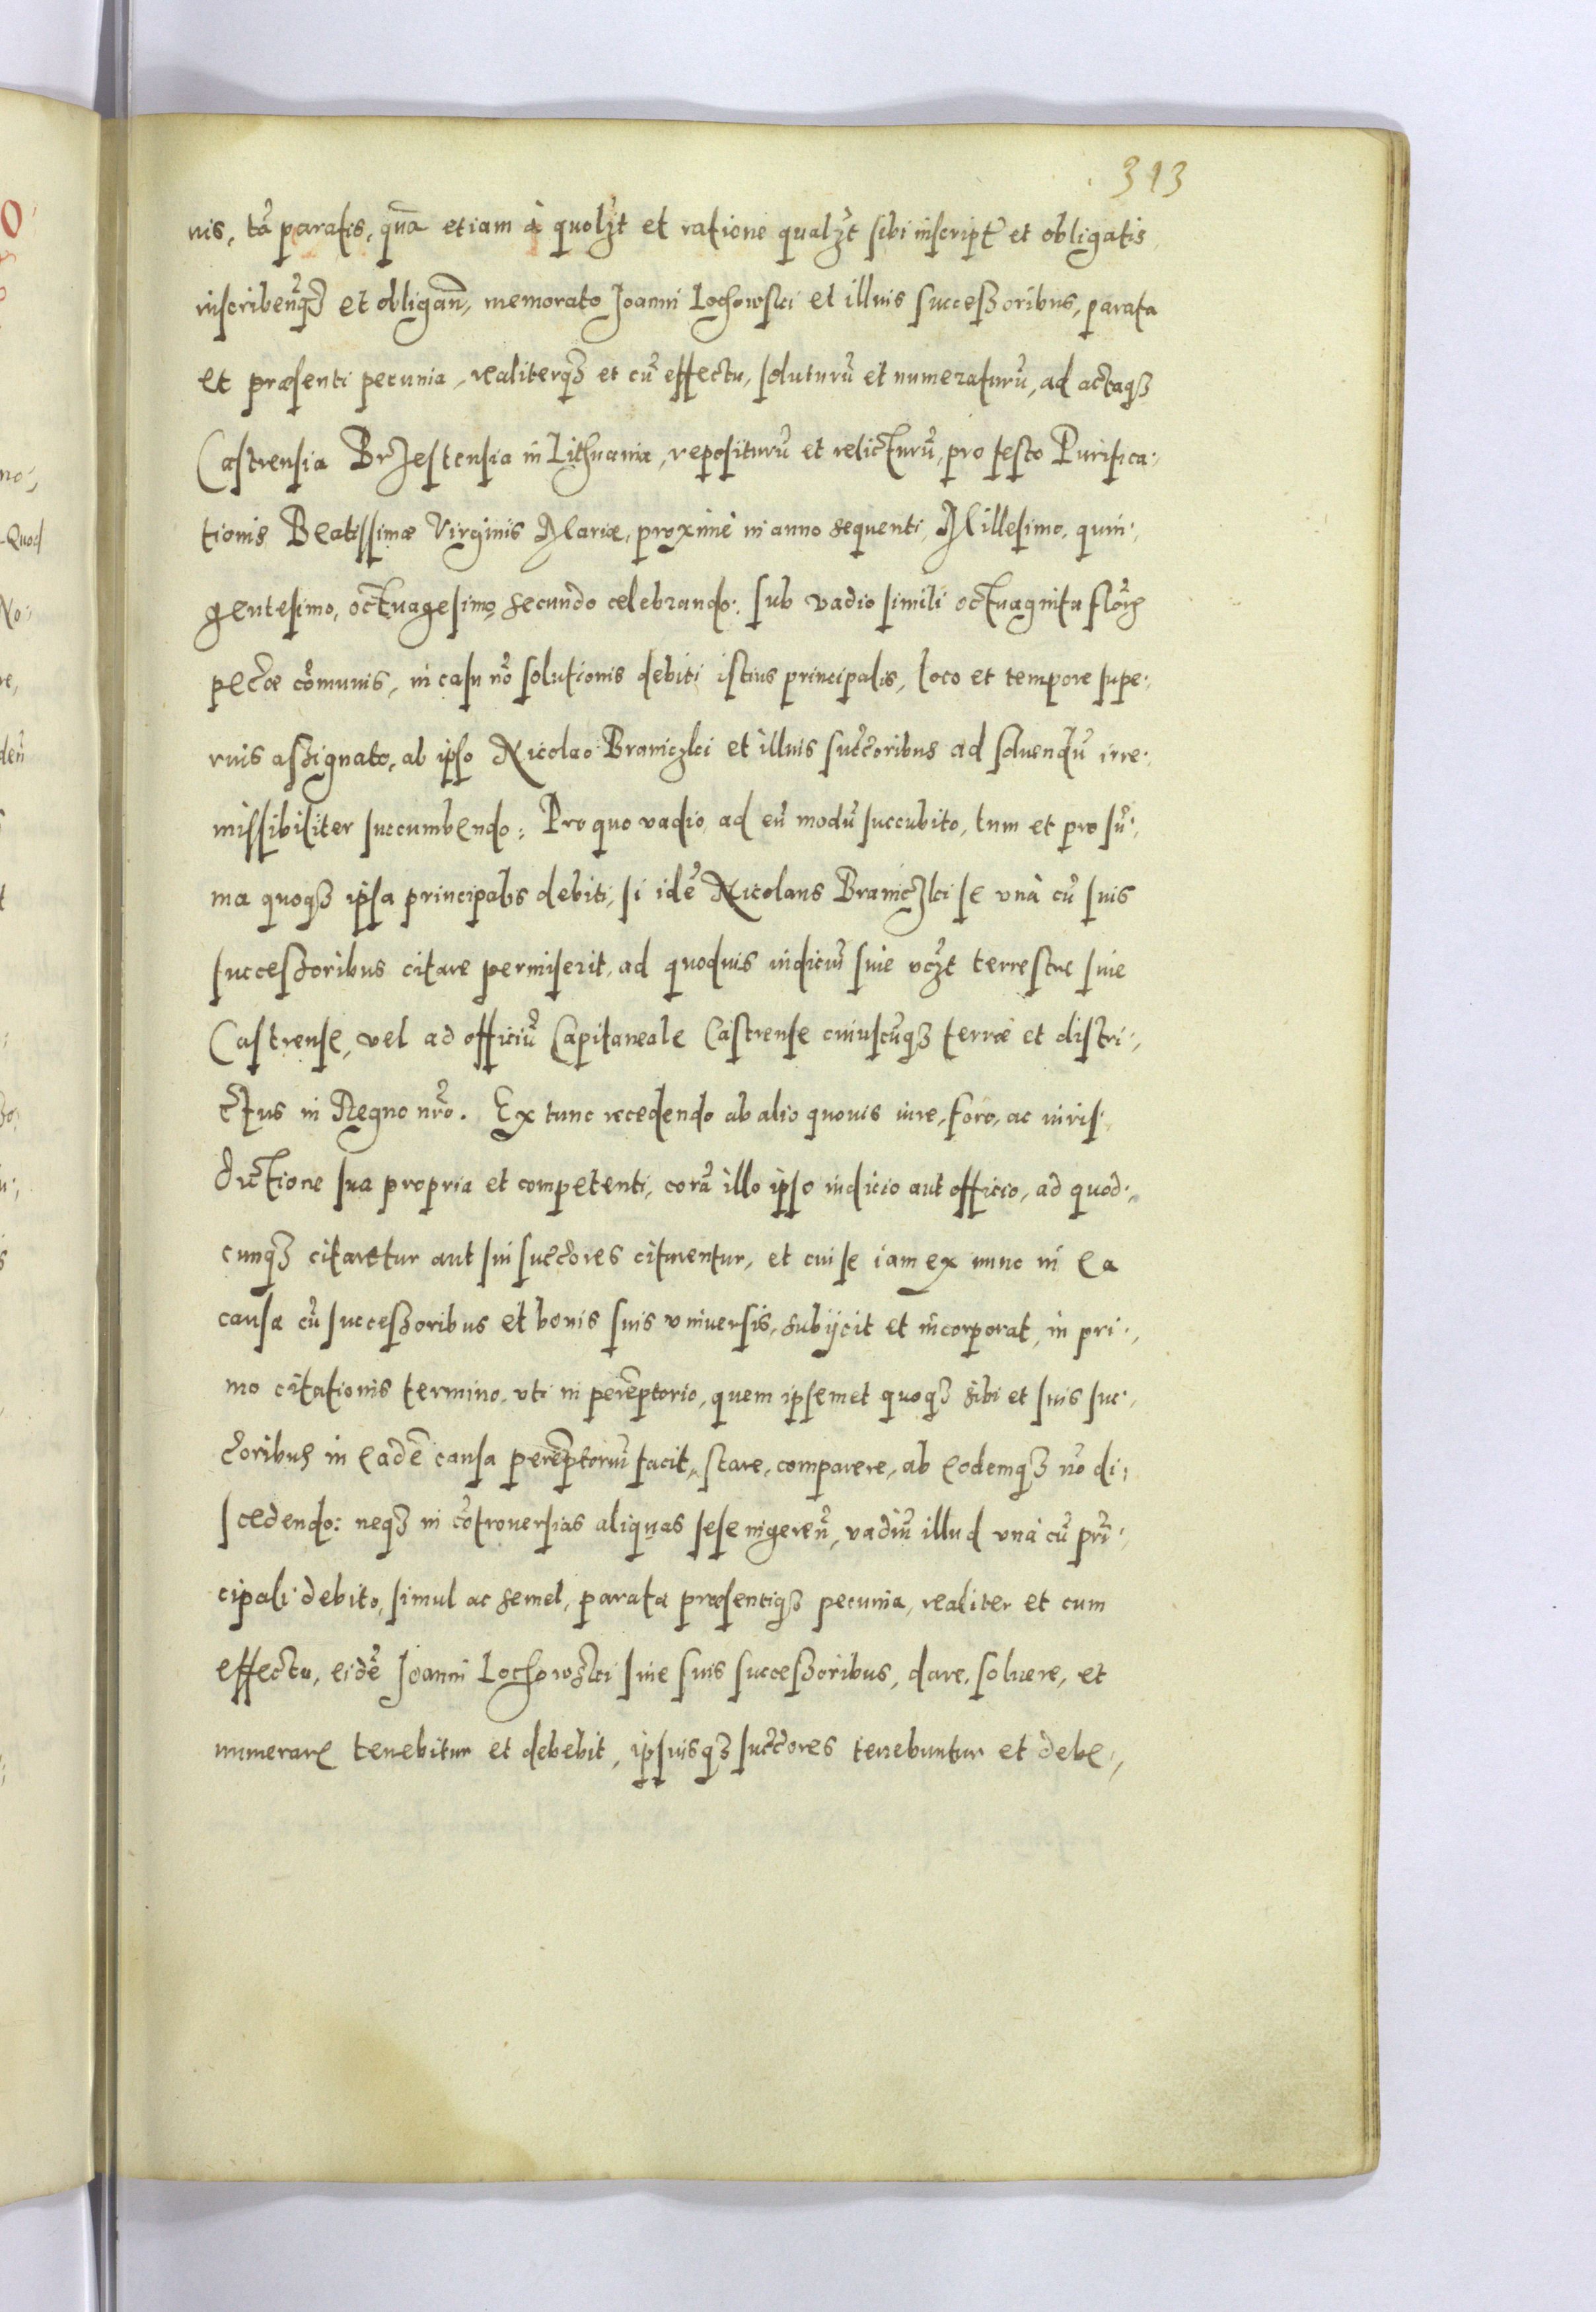 313
nis, tã paratis, quã etiam à quolꝫt et ratione qualꝫt sibi inscript̃ et obligatis
inscribeñqꝫ et obligañ, memorato Joanni Lochowski et illius successoribus, parata
et præsenti pecunia, realiterqꝫ et cũ effectu, soluturũ et numeraturũ, ad actaqꝫ
Castrensia Brzestensia in Lithuania, repositurũ et relicturũ, pro festo Purifica-
tionis Beatissimæ Virginis Mariæ, proximè in anno sequenti Millesimo, quin-
gentesimo, octuagesimo secundo celebrando: sub vadio simili octuaginta florꝫ
pecũæ cõmunis, in casu nõ solutionis debiti istius principalis, loco et tempore supe-
rius assignato, ab ipso Nicolao Braniczki et illius succ̃oribus ad soluendũ irre-
missibiliter succumbendo: Pro quo vadio, ad eũ modũ succubito, tum et pro sũ-
ma quoqꝫ ipsa principalis debiti, si idẽ Nicolaus Braniczki se vnà cũ suis
successoribus citare permiserit, ad quoduis iudiciũ siue vcꝫt terrestre siue
Castrense, vel ad officiũ Capitaneale Castrense cuiuscũqꝫ terræ et distri-
ctus in Regno nr̃o. Ex tunc recedendo ab alio quouis iure, foro, ac iuris-
dictione sua propria et competenti, corã illo ipso iudicio aut officio, ad quod-
cunqꝫ citaretur aut sui succ̃ores citarentur, et cui se iam ex nunc in ea
causa cũ successoribus et bonis suis vniuersis, subijcit et incorporat, in pri-
mo citationis termino, vti in perẽptorio, quem ipsemet quoqꝫ sibi et suis suc-
c̃oribus in eadẽ causa perẽptoriũ facit, stare, comparere, ab eodemqꝫ nõ di-
scedendo: neqꝫ in cõtrouersias aliquas sese ingereñ, vadiũ illud vnà cũ prĩ-
cipali debito, simul ac semel, parata præsentiqꝫ pecunia, realiter et cum
effectu, eidẽ Joanni Lochowski siue suis successoribus, dare, soluere, et
numerare tenebitur et debebit, ipsiusqꝫ succ̃ores tenebuntur et debe-